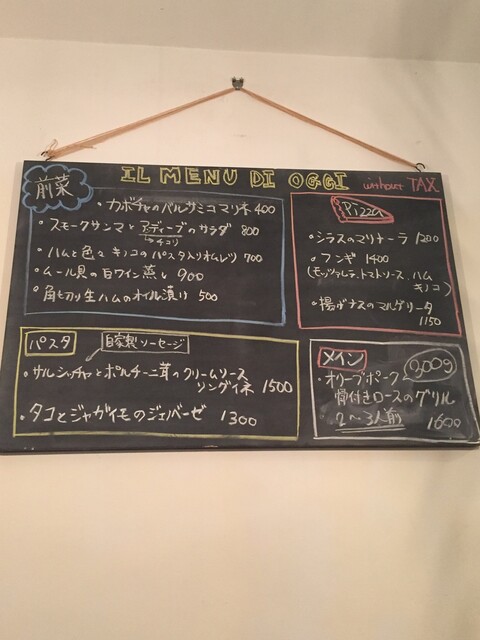 IL MENU DI OGGI without TAX
前菜
・カボチャのバルサミコマリネ 400
・スモークサンマとアンディーブのサラダ 800
→チコリ
・ハムと色々キノコのパスタ入りオムレツ 700
・ムール貝の白ワイン蒸し 900
・角切り生ハムのオイル漬け 500
Pizza
・シラスのマリナーラ 1200
・フンギ 1400
(モッツァレラ、トマトソース、ハム
キノコ)
・揚げナスのマルゲリータ
1150
パスタ
自家製ソーセージ
・サルシッチャとポルチーニ茸のクリームソース
リングイネ 1500
・タコとジャガイモのジェノベーゼ 1300
メイン
300g
・オリーブポーク
骨付きロースのグリル
2〜3人前 1600